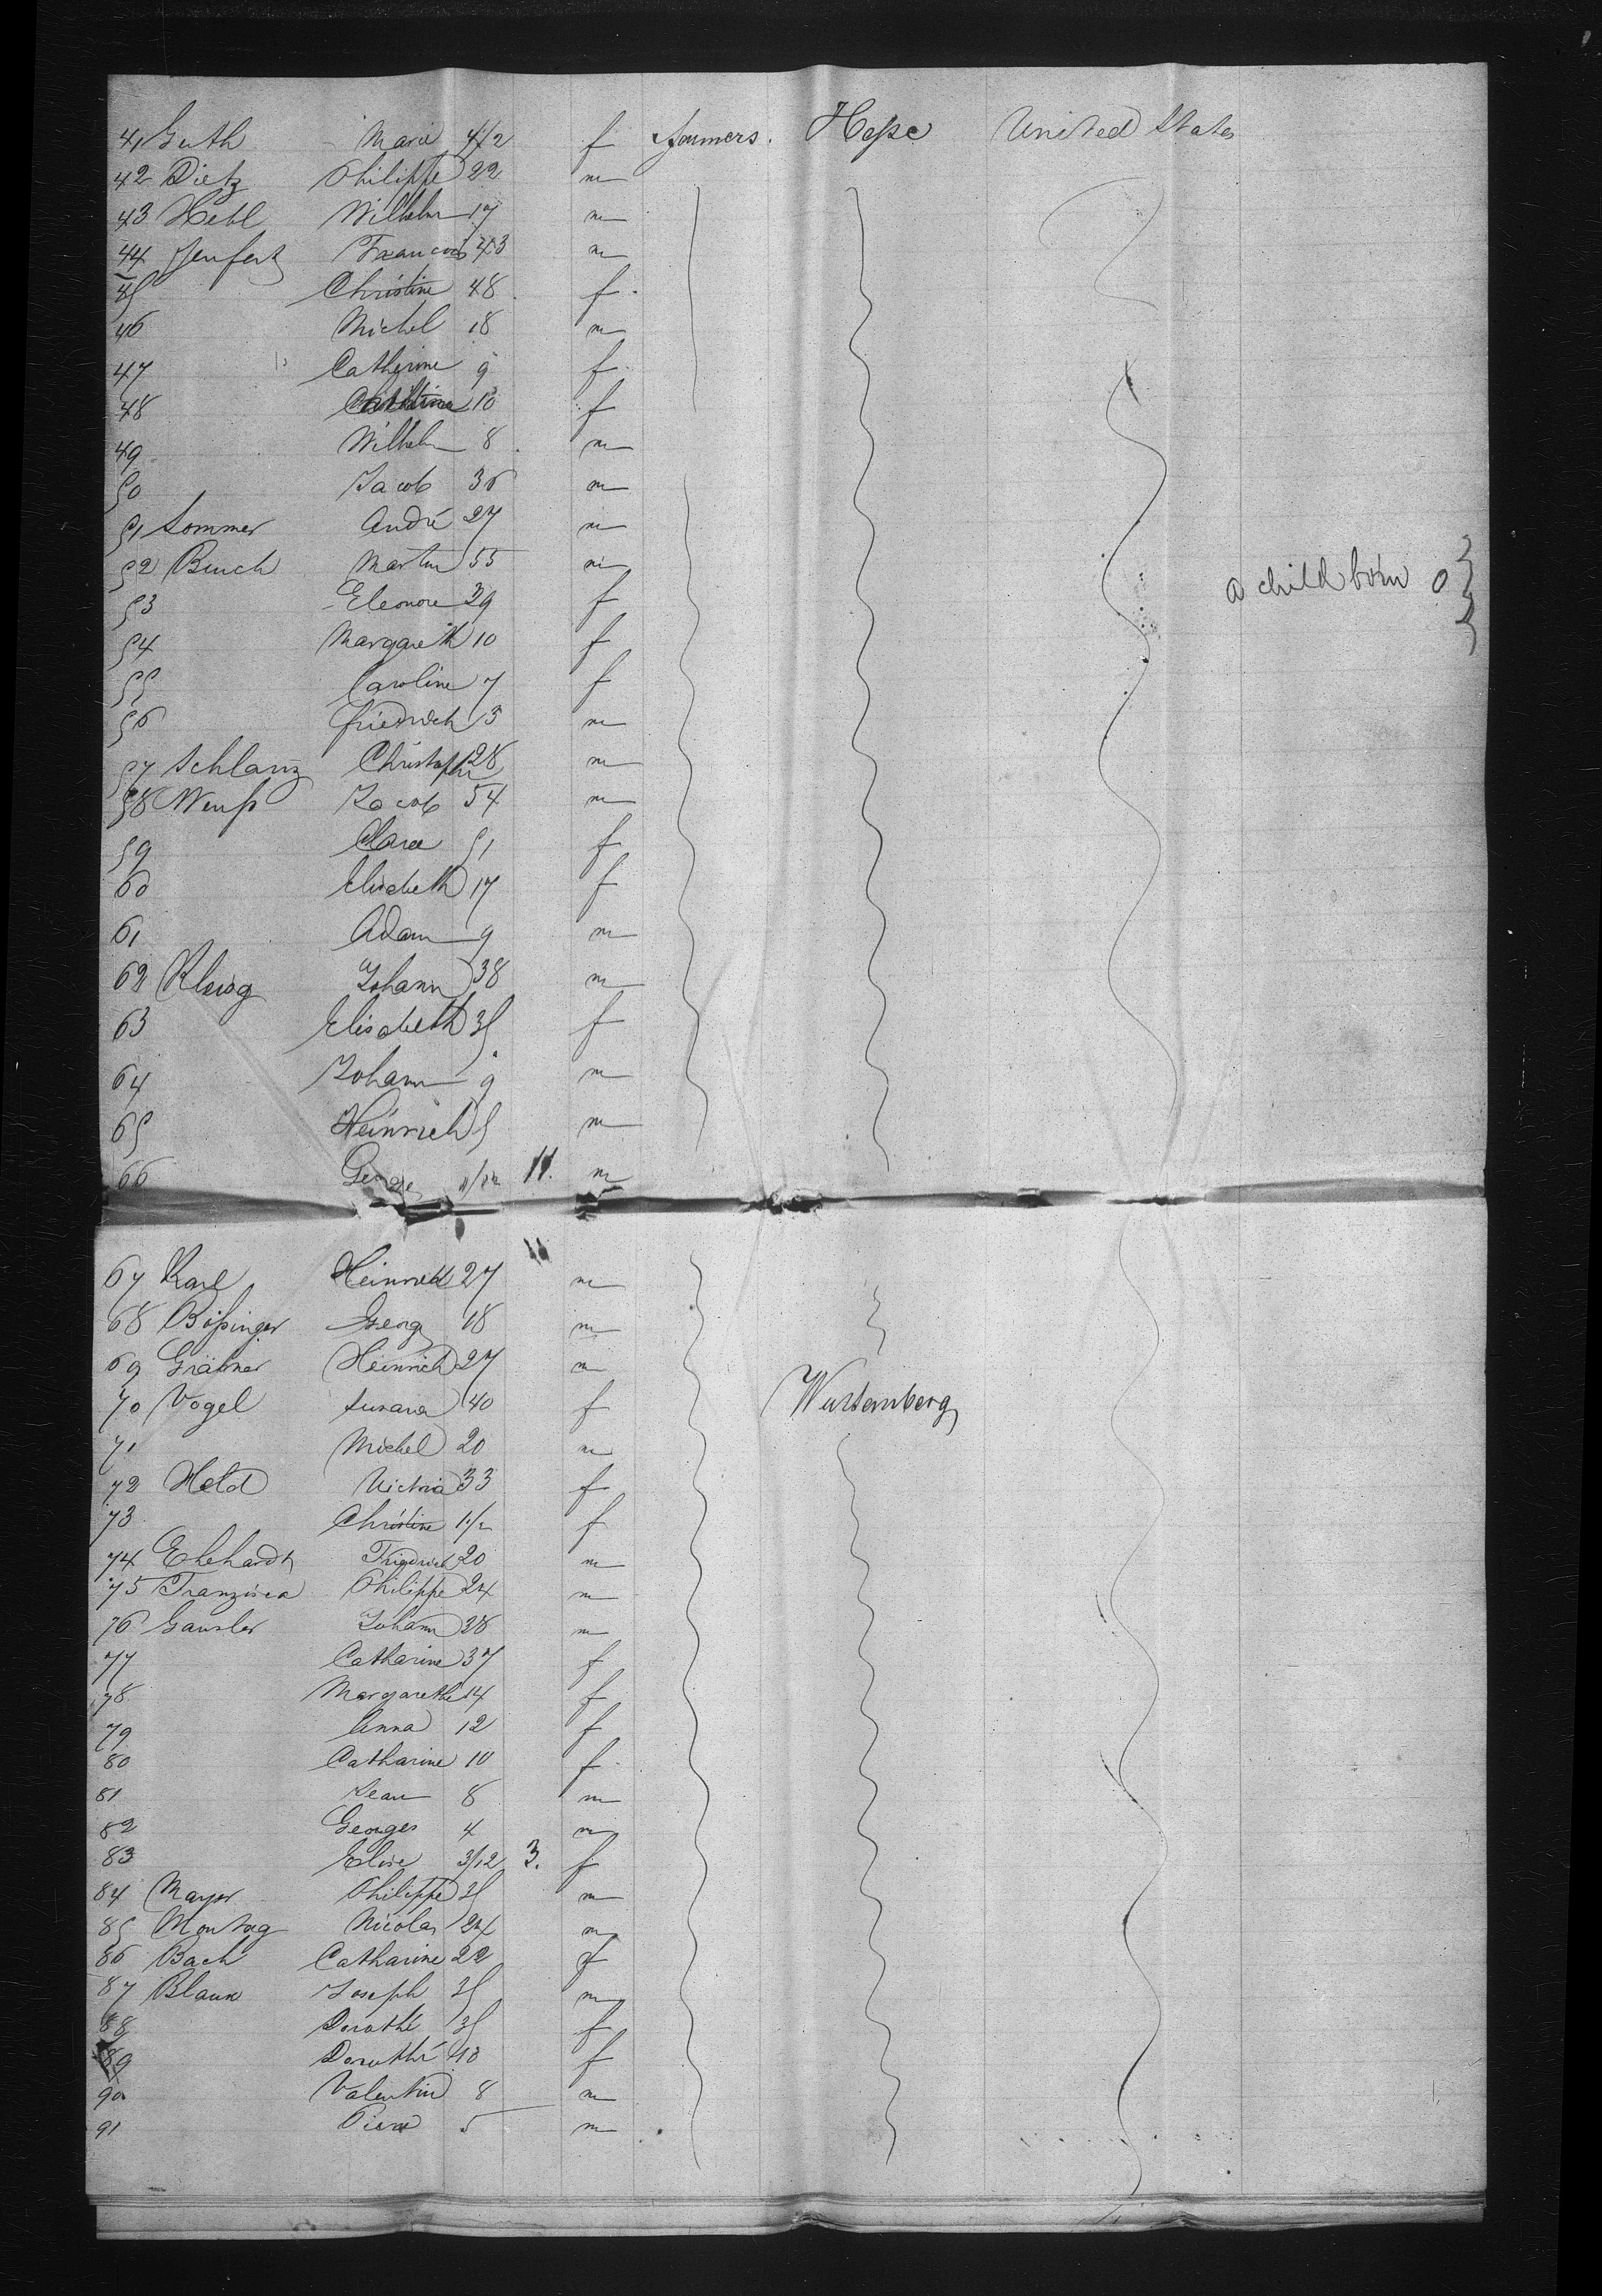 41 Guth Marie 4 1/2 f farmers. Hesse United States
42 Dietz Philippe 22 m
43 Hebl Wilhelm 17 m
44 Francois 43 m
45 Christine 48 f
46 Michel 18 m
47 Catherine 9 f
48 10 f
49 Wilhelm 8 m
50 Jacob 36 m
51 Sommer André 27 m
52 Buch Martin 55 m
53 Eleonore 39 f a child born 0
54 Margareth 10 f
55 Caroline 7 f
56 Friedrich 3 m
57 Schlanz Christophe 28 m
58 Weuß Jacob 54 m
59 Clara 51 f
60 Elisabeth 17 f
61 Adam 9 m
62 Johann 38 m
63 Elisabeth 35 f
64 Johann 9 m
65 Heinrich 5 m
66 George 11/12 11. m
67 Karl Heinrich 27 m
68 Bößinger Georg 18 m
69 Gräbner Heinrich 27 m
70 Vogel Susana 40 f Wurtemberg
71 Michel 20 m
72 Held Victoria 33 f
73 Christine 1 1/2 f
74 Ehehardt Friedrich 20 m
75 Franzisca Philippe 24 m
76 Gansler Johann 38 m
77 Catharine 37 f
78 Margarethe 14 f
79 Anna 12 f
80 Catharine 10 f
81 Jean 8 m
82 Georges 4 m
83 Elise 3/12 3. f
84 Mayer Philippe 35 m
85 Montag Nicolas 24 m
86 Bach Catharine 22 f
87 Blaux Joseph 35 m
88 Dorothé 35 f
89 Dorothé 10 f
90 Valentin 8 m
91 Pierre 5 m